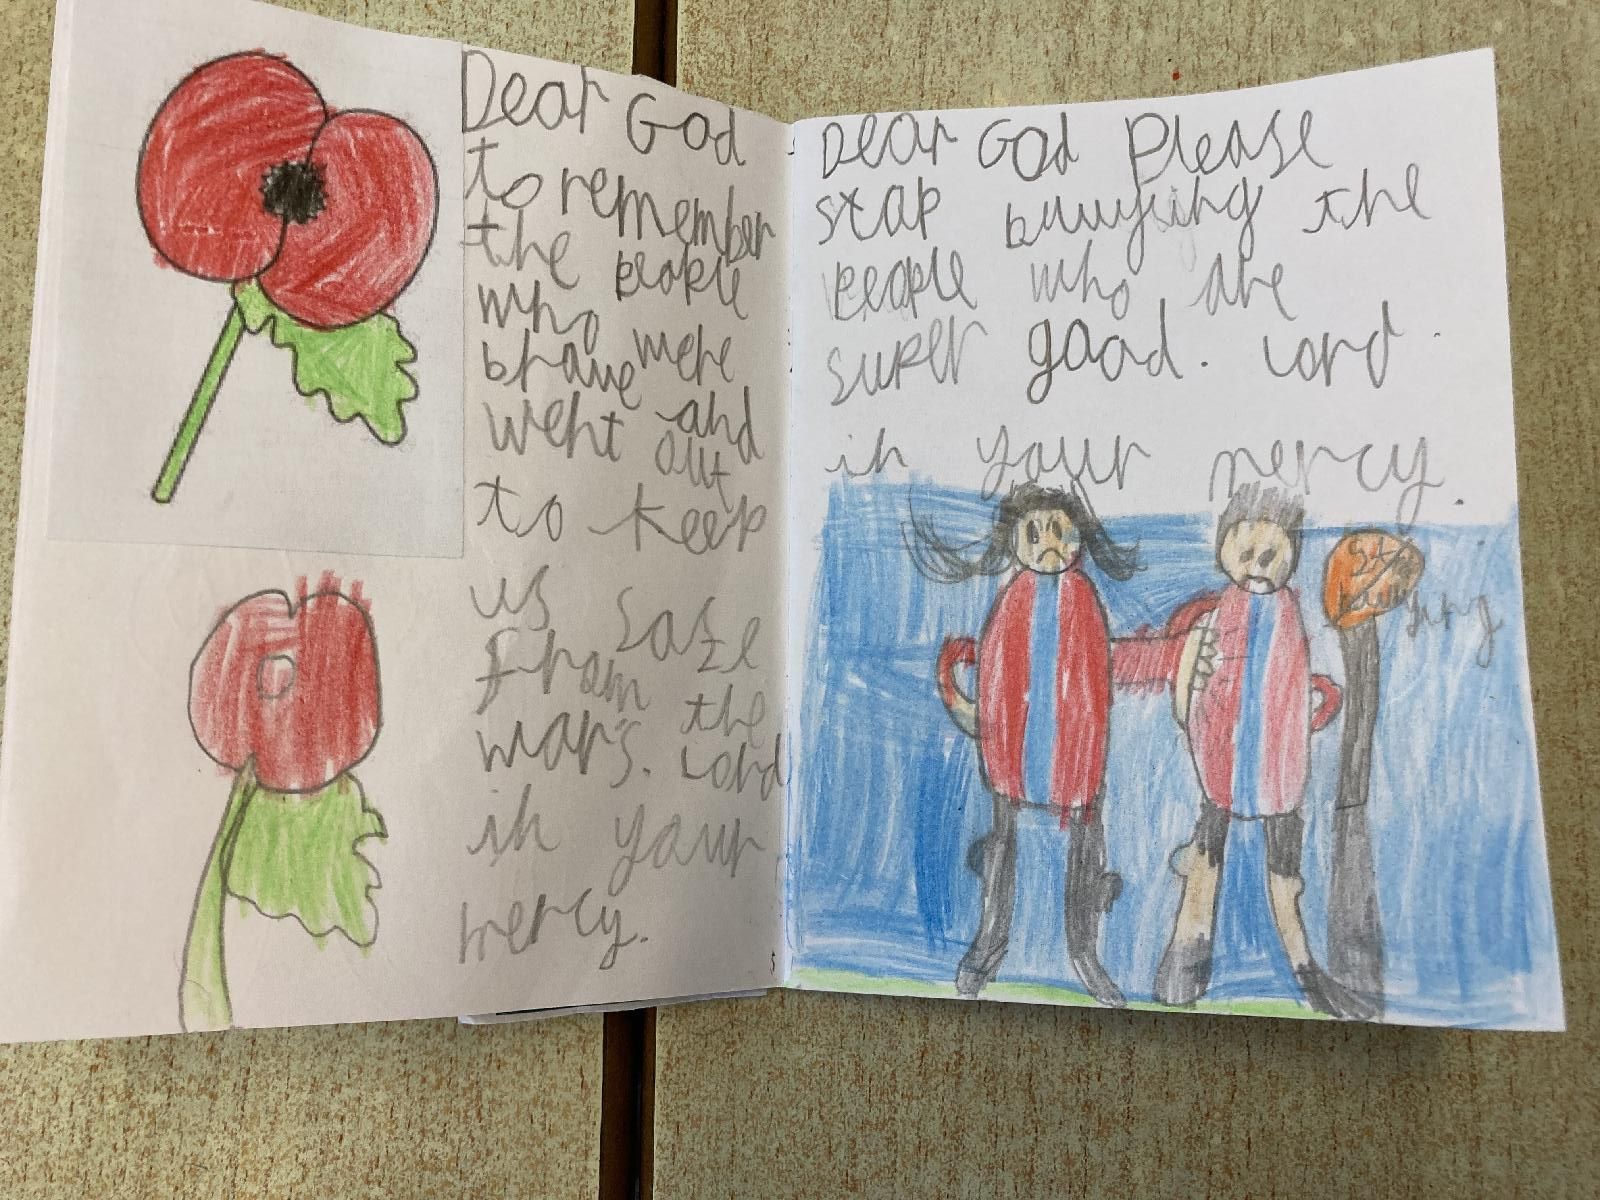 Dear God
to remember
the people
who were
brave and
went out
to keep
us safe
from the
wars. Lord
in your
mercy.
Dear God Please
stop bullying the
people who are
super good. Lord
in your mercy.
Stop
bullying